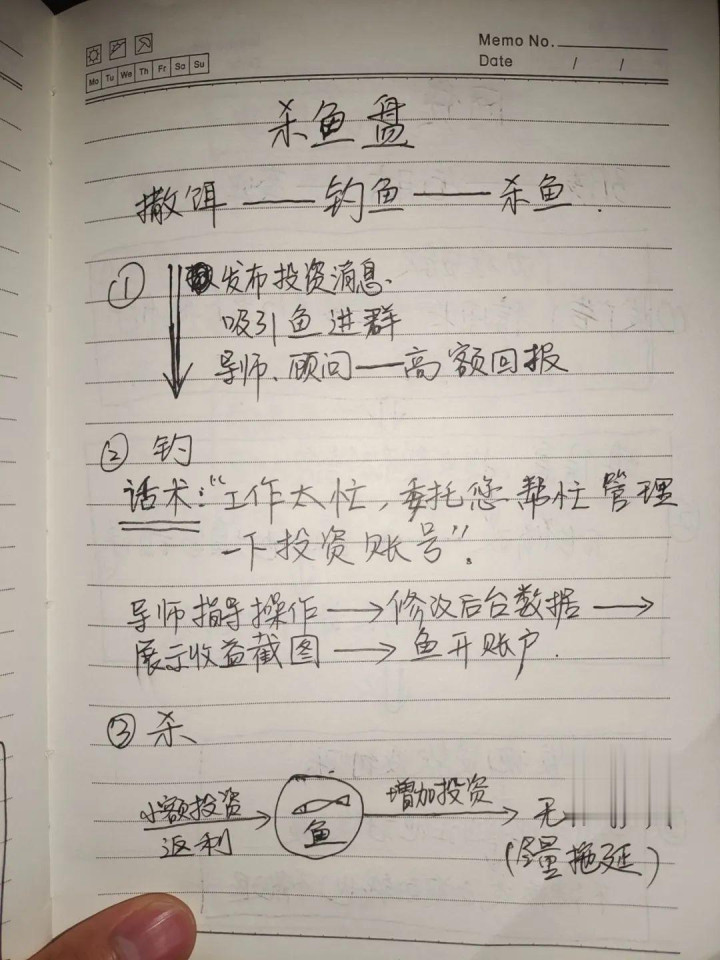 Memo No.
Mo Tu We Th Fr Sa Su
Date / /
杀鱼盘
撒饵——钓鱼——杀鱼.
① 发布投资消息.
吸引鱼进群
导师、顾问—高额回报
② 钓
话术:“工作太忙,委托您帮忙管理
一下投资账号”。
导师指导操作→修改后台数据→
展示收益截图→鱼开账户.
③ 杀
小额投资 返利 → 鱼 增加投资 → 无
(尽量拖延)